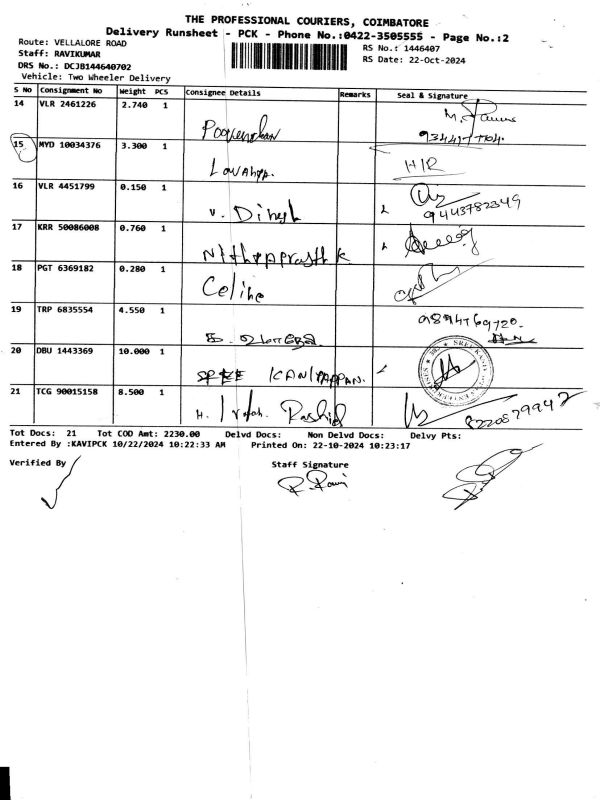 THE PROFESSIONAL COURIERS, COIMBATORE
Delivery Runsheet - PCK - Phone No.:0422-3505555 - Page No.:2
Route: VELLALORE ROAD
RS No.: 1446407
Staff: RAVIKUMAR
RS Date: 22-Oct-2024
DRS No.: DCJB144640702
Vehicle: Two Wheeler Delivery
S No Consignment No Weight PCS Consignee Details Remarks Seal & Signature
14 VLR 2461226 2.740 1
15 MYD 10034376 3.300 1
H/R
16 VLR 4451799 0.150 1
V. Dinesh
9443782349
17 KRR 50086008 0.760 1
Nithyaprasth k
18 PGT 6369182 0.280 1
Celine
19 TRP 6835554 4.550 1
9894769720.
20 DBU 1443369 10.000 1
SREE
21 TCG 90015158 8.500 1
H. Rashid
8220579942
Tot Docs: 21 Tot COD Amt: 2230.00 Delvd Docs: Non Delvd Docs: Delvy Pts:
Entered By :KAVIPCK 10/22/2024 10:22:33 AM Printed On: 22-10-2024 10:23:17
Verified By
Staff Signature
R. Ravi